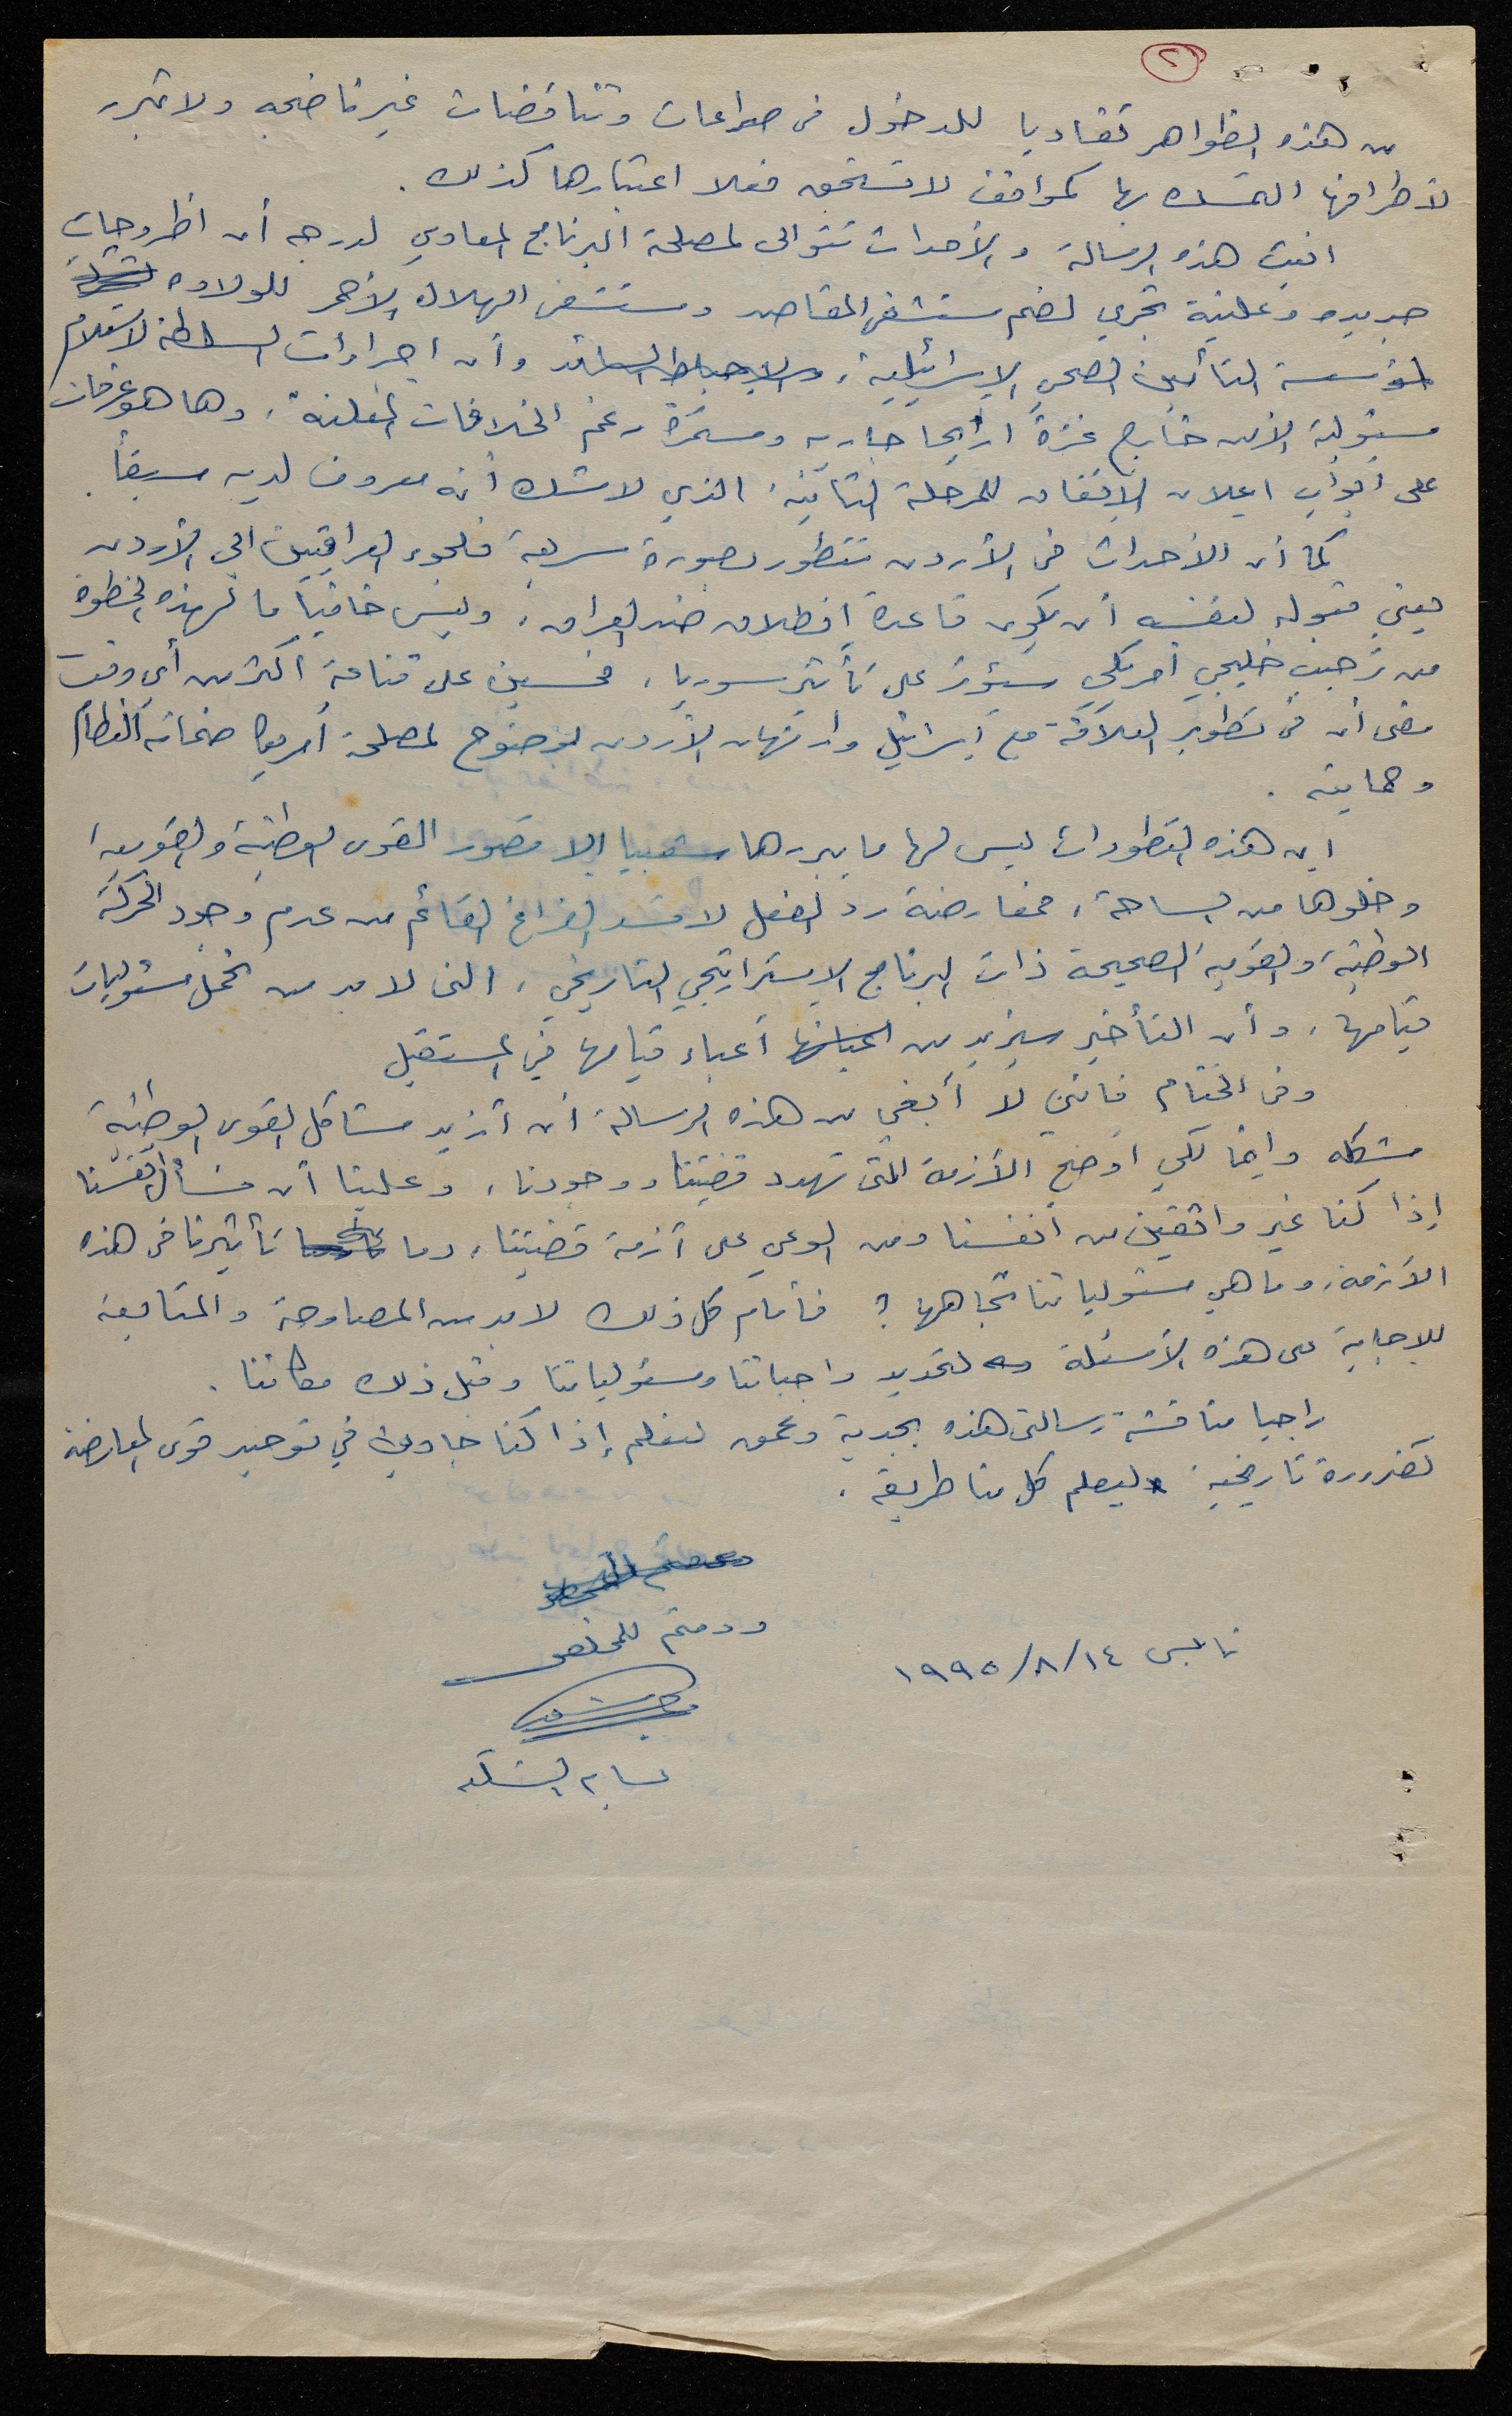 ٢
من هذه الظواهر تفاديا للدخول في صراعات وتناقضات غير ناضجه ولا تبرر
لأطرافها التمسك بها كمواقف لا تستحق فعلا اعتبارها كذلك .
اكتب هذه الرسالة والأحداث تتوالى لمصلحة البرنامج المعادي لدرجه أن اطروحات
جديده وعلنية تجري لضم مستشفى المقاصد ومستشفى الهلال الأحمر للولاده
لمؤسسة التأمين الصحي الإسرائيلية، وأن اجراءات السلطة لاستلام
مسئولية الأمن خارج غزة أريحا جاريه ومستمرة رغم الخلافات المعلنة، وها هو عرفات
على ابواب اعلان الإتفاق للمرحلة الثانية، الذي لا شك أنه معروف لديه مسبقاً.
كما أن الأحداث في الأردن تتطور بصورة سريعة فلجوء العراقيين الى الأردن
يعني قبوله لنفسه أن يكون قاعدة انطلاق ضد العراق، وليس خافياً ما لهذه الخطوة
من ترحيب خليجي أمريكي سيؤثر على تأثير سوريا، فحسين على قناعة أكثر من أي وقت
مضى أن في تطوير العلاقة مع إسرائيل وارتهان الأردن بوضوح لمصلحة أمريكا ضمانة النظام
وحمايته .
إن هذه التطورات ليس لها ما يبررها شعبيا إلا قصور القوى الوطنية والقومية
وخلوها من الساحة، فمعارضة رد الفعل لا تسد الفراغ القائم من عدم وجود الحركة
الوطنية والقومية الصحيحة ذات البرنامج الإستراتيجي التاريخي، التي لا بد من تحمل مسئوليات
قيامها، وأن التأخير سيزيد من أعباء قيامها في المستقبل
وفي الختام فانني لا أبغي من هذه الرسالة أن أزيد مشاكل القوى الوطنية
مشكله وإنما لكي اوضح الأزمة التي تهدد قضيتنا ووجودنا، وعلينا أن نسأل أنفسنا
إذا كنا غير واثقين من أنفسنا ومن الوعي على أزمة قضيتنا، وما تأثيرنا في هذه
الأزمة، وما هي مسئولياتنا تجاهها ؟ فأمام كل ذلك لا بد من المصارحة والمتابعة
للإجابة على هذه الأسئلة لتحديد واجباتنا ومسئولياتنا وقبل ذلك مكاننا .
راجيا مناقشة رسالتي هذه بجدية وعمق لنعلم إذا كنا جادين في توحيد قوى المعارضة
كضرورة تاريخية ليعلم كل منا طريقه .
ودمتم للمخلص
نابلس ١٤/٨/١٩٩٥
بسام الشكعه